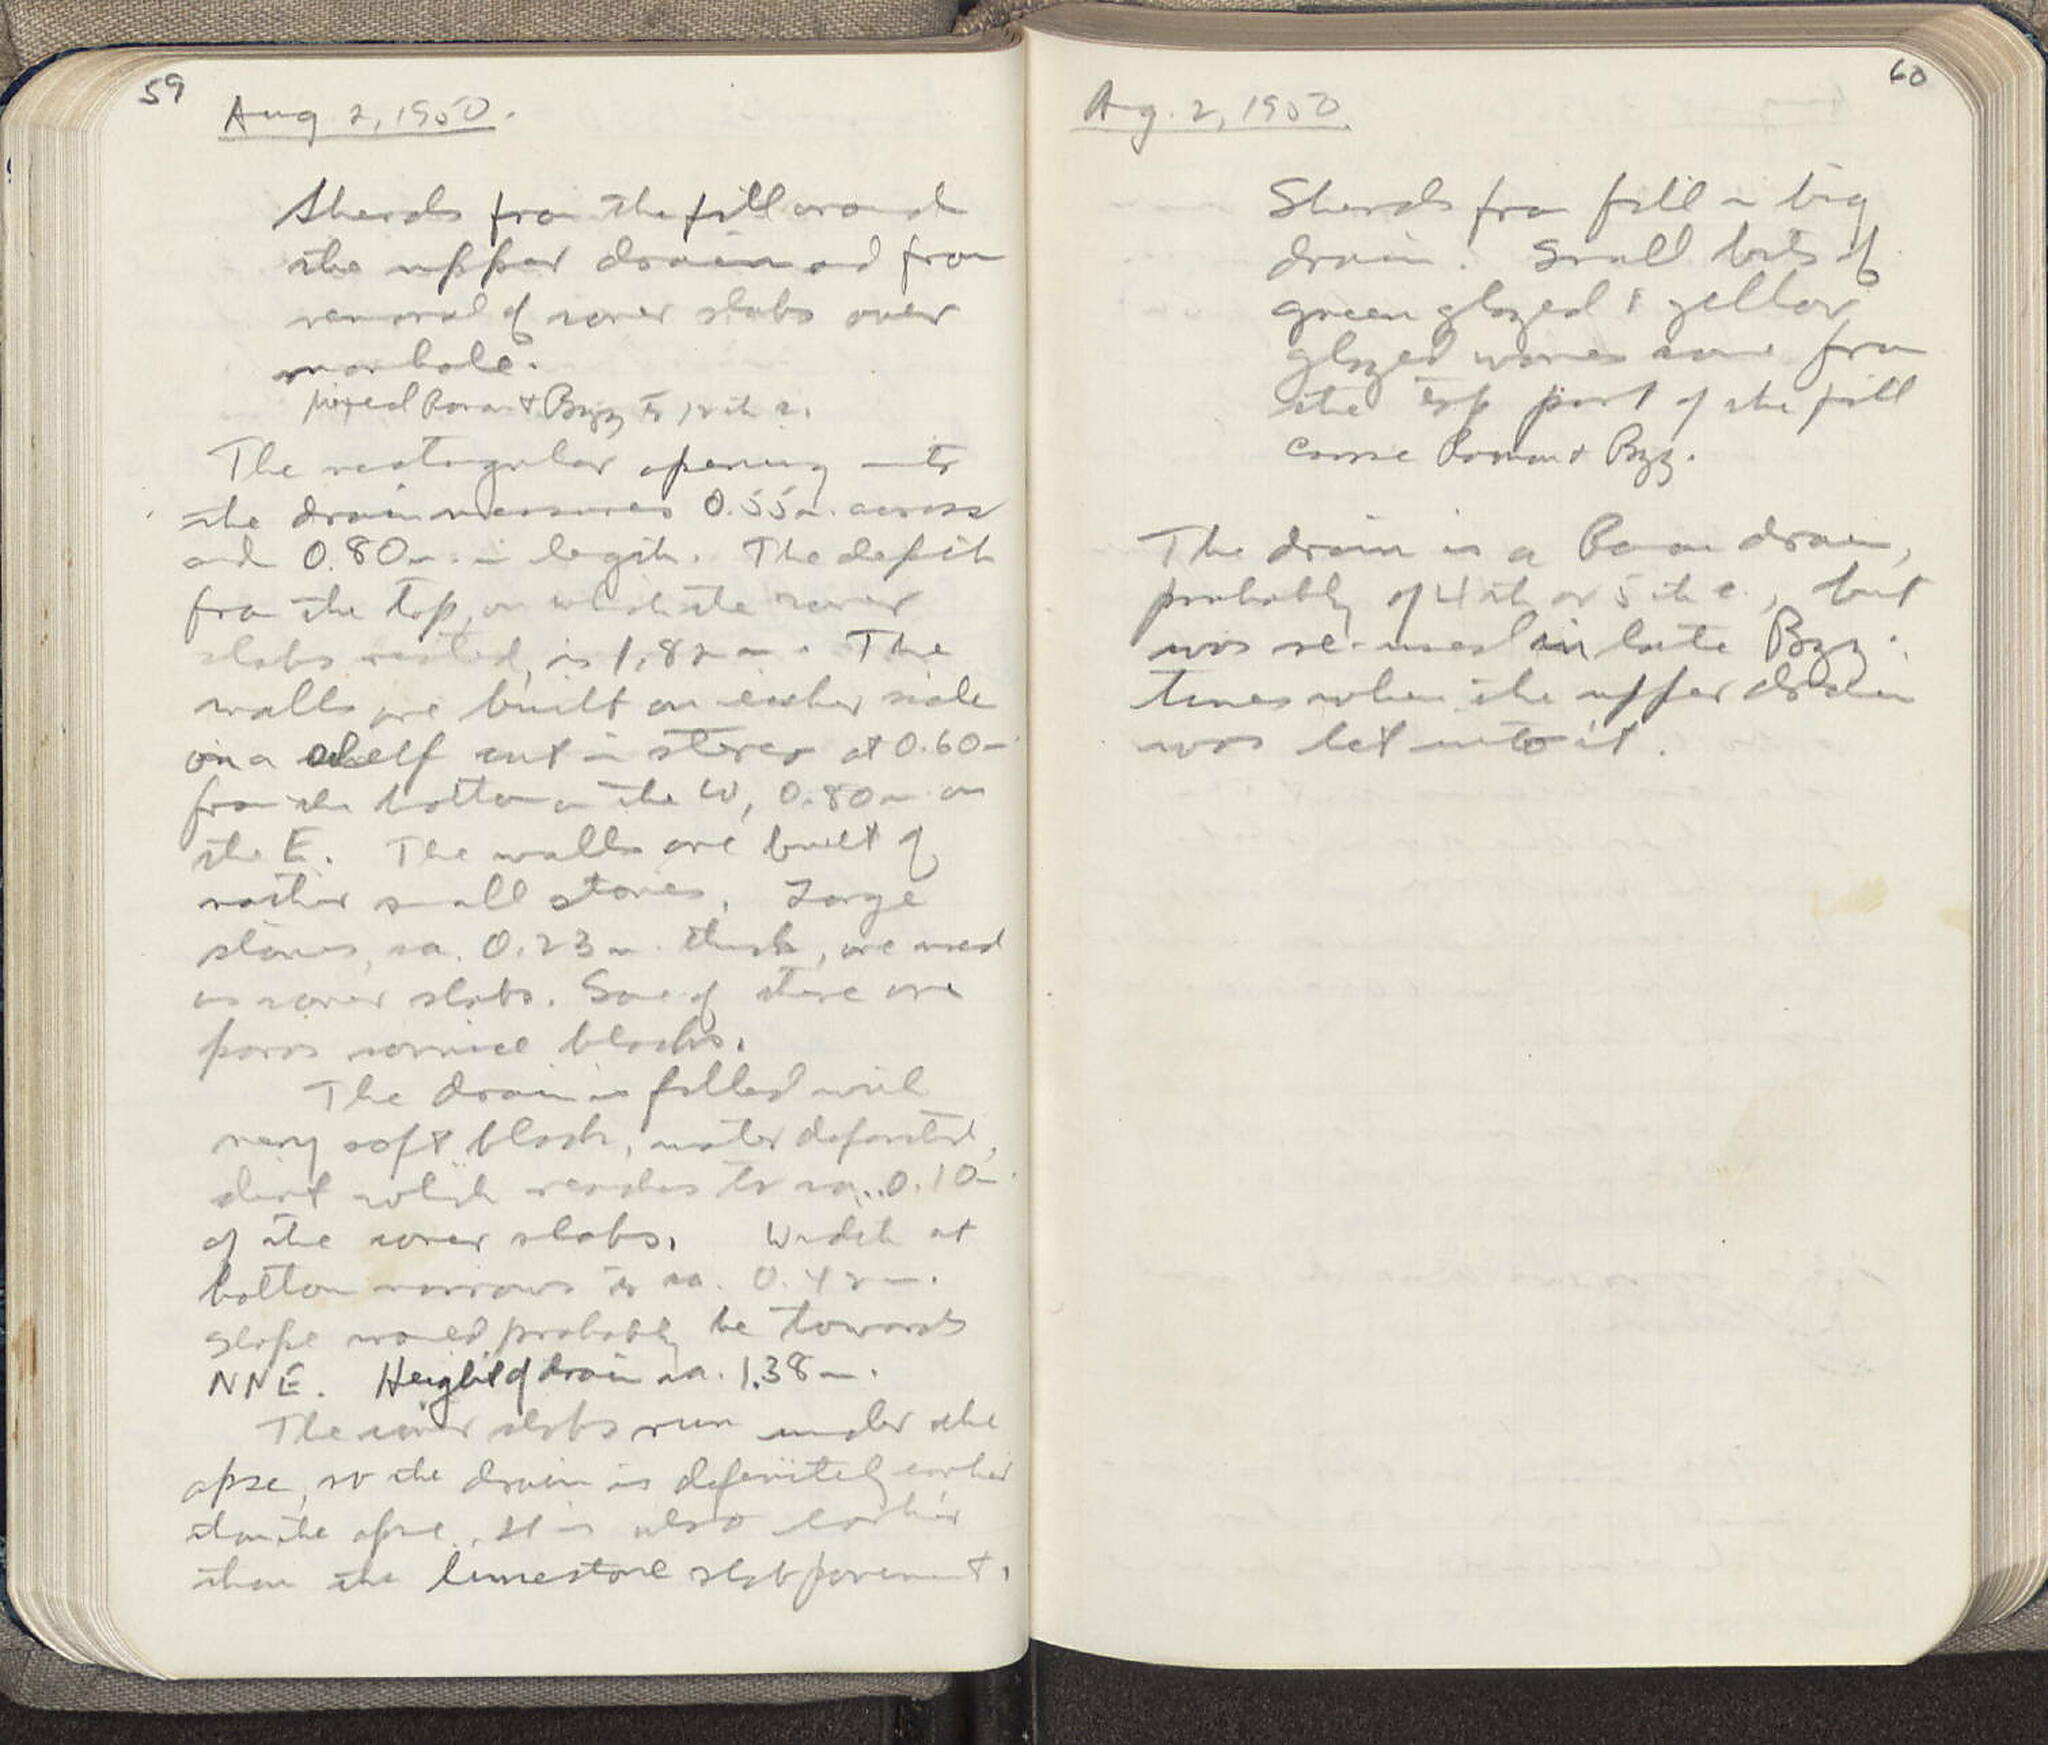 59
Aug 2, 1950.
Sherds from the fill around
the upper drain and from
removal of cover slabs over
manhole.
Mixed Roman & Byz to 12th c.
The rectangular opening into
the drain measures 0.55m. across
and 0.80m. in length. The depth
from the top, on which the cover
slabs rested, is 1.82m. The
walls are built on either side
on a shelf cut in stereo at 0.60m
from the bottom on the W, 0.80m on
the E. The walls are built of
rather small stones. Large
stones, ca. 0.23m. thick, are used
as cover slabs. Some of these are
poros cornice blocks.
The drain is filled with
very soft black, water deposited,
dirt which reaches to ca. 0.10m.
of the cover slabs. Width at
bottom narrows to ca. 0.42m.
Slope would probably be towards
NNE. Height of drain ca. 1.38m.
The cover slabs run under the
apse, so the drain is definitely earlier
than the apse. It is also earlier
than the limestone slab pavement.
60
Ag. 2, 1950
Sherds from fill in big
drain. Small bits of
green glazed & yellow
glazed wares come from
the top part of the fill
coarse Roman & Byz.
The drain is a Roman drain,
probably of 4th or 5th c., but
was re-used in late Byz.
times when the upper drain
was let into it.